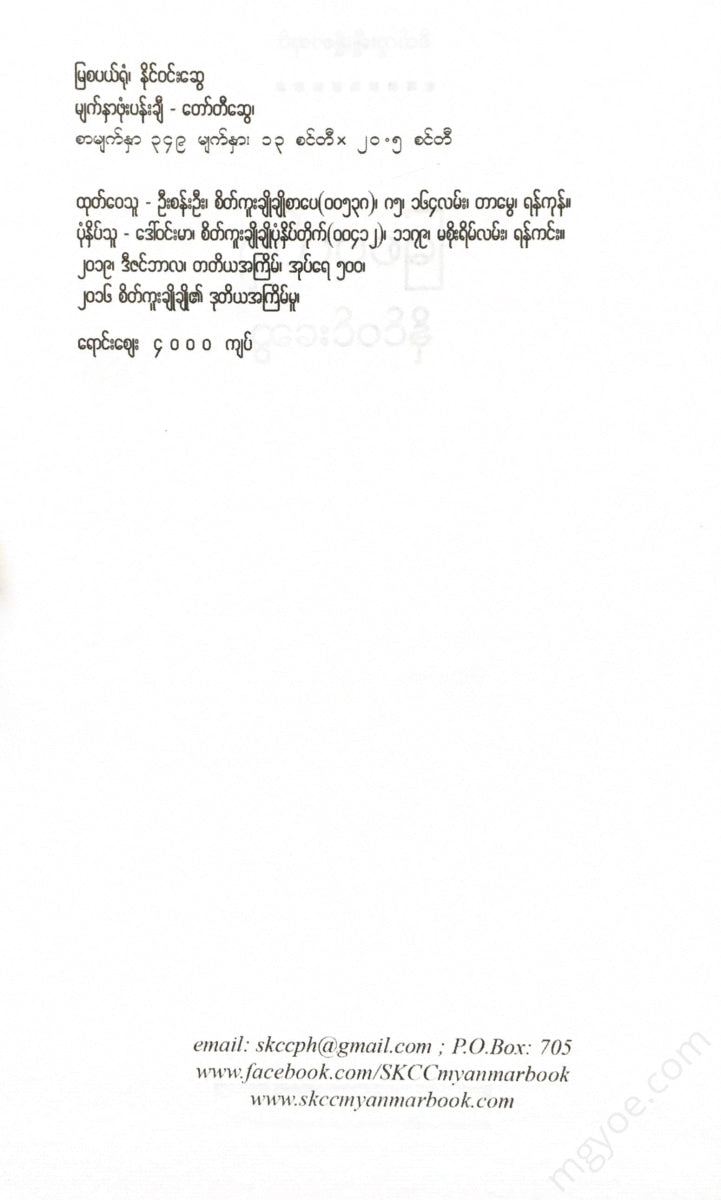 မြစပယ်ရုံ၊ နိုင်ဝင်းဆွေ
မျက်နှာဖုံးပန်းချီ - တော်တီဆွေ၊
စာမျက်နှာ ၃၄၉ မျက်နှာ၊ ၁၃ စင်တီ × ၂၀.၅ စင်တီ
ထုတ်ဝေသူ - ဦးစန်းဦး၊ စိတ်ကူးချိုချိုစာပေ(၀၀၅၃၈)၊ ဂ၅၊ ၁၆၄လမ်း၊ တာမွေ၊ ရန်ကုန်။
ပုံနှိပ်သူ - ဒေါ်ဝင်းမာ၊ စိတ်ကူးချိုချိုပုံနှိပ်တိုက်(၀၀၄၁၂)၊ ၁၁၇၉၊ မစိုးရိမ်လမ်း၊ ရန်ကင်း။
၂၀၁၉၊ ဒီဇင်ဘာလ၊ တတိယအကြိမ်၊ အုပ်ရေ ၅၀၀၊
၂၀၁၆ စိတ်ကူးချိုချို၏ ဒုတိယအကြိမ်မူ၊
ရောင်းဈေး ၄၀၀၀ ကျပ်
email: skccph@gmail.com ; P.O.Box: 705
www.facebook.com/SKCCmyanmarbook
www.skccmyanmarbook.com
mgyoe.com